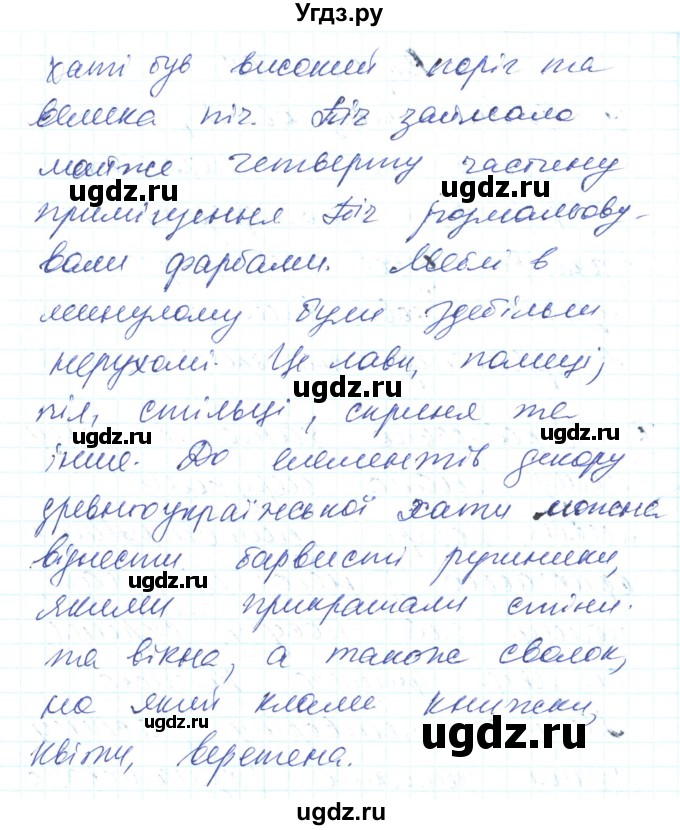 Угдз.ру
хаті був високий поріг та
велика піч. Піч займала
майже четверту частину
ugdz.ru ugdz.ru
приміщення Піч розмальову-
вали фарбами. Меблі в
минулому були здебільш
нерухомі. Це лави, полиці,
ugdz.ru
піл, стільці, скриня та
ugdz.ru ugdz.ru
інше. До елементів декору
древньоукраїнської хати можна
віднести барвисті рушники,
ugdz.ru
якими прикрашали стіни
та вікна, а також сволок,
на який клали книжки,
ugdz.ru ugdz.ru
квіти, веретена.
ugdz.ru